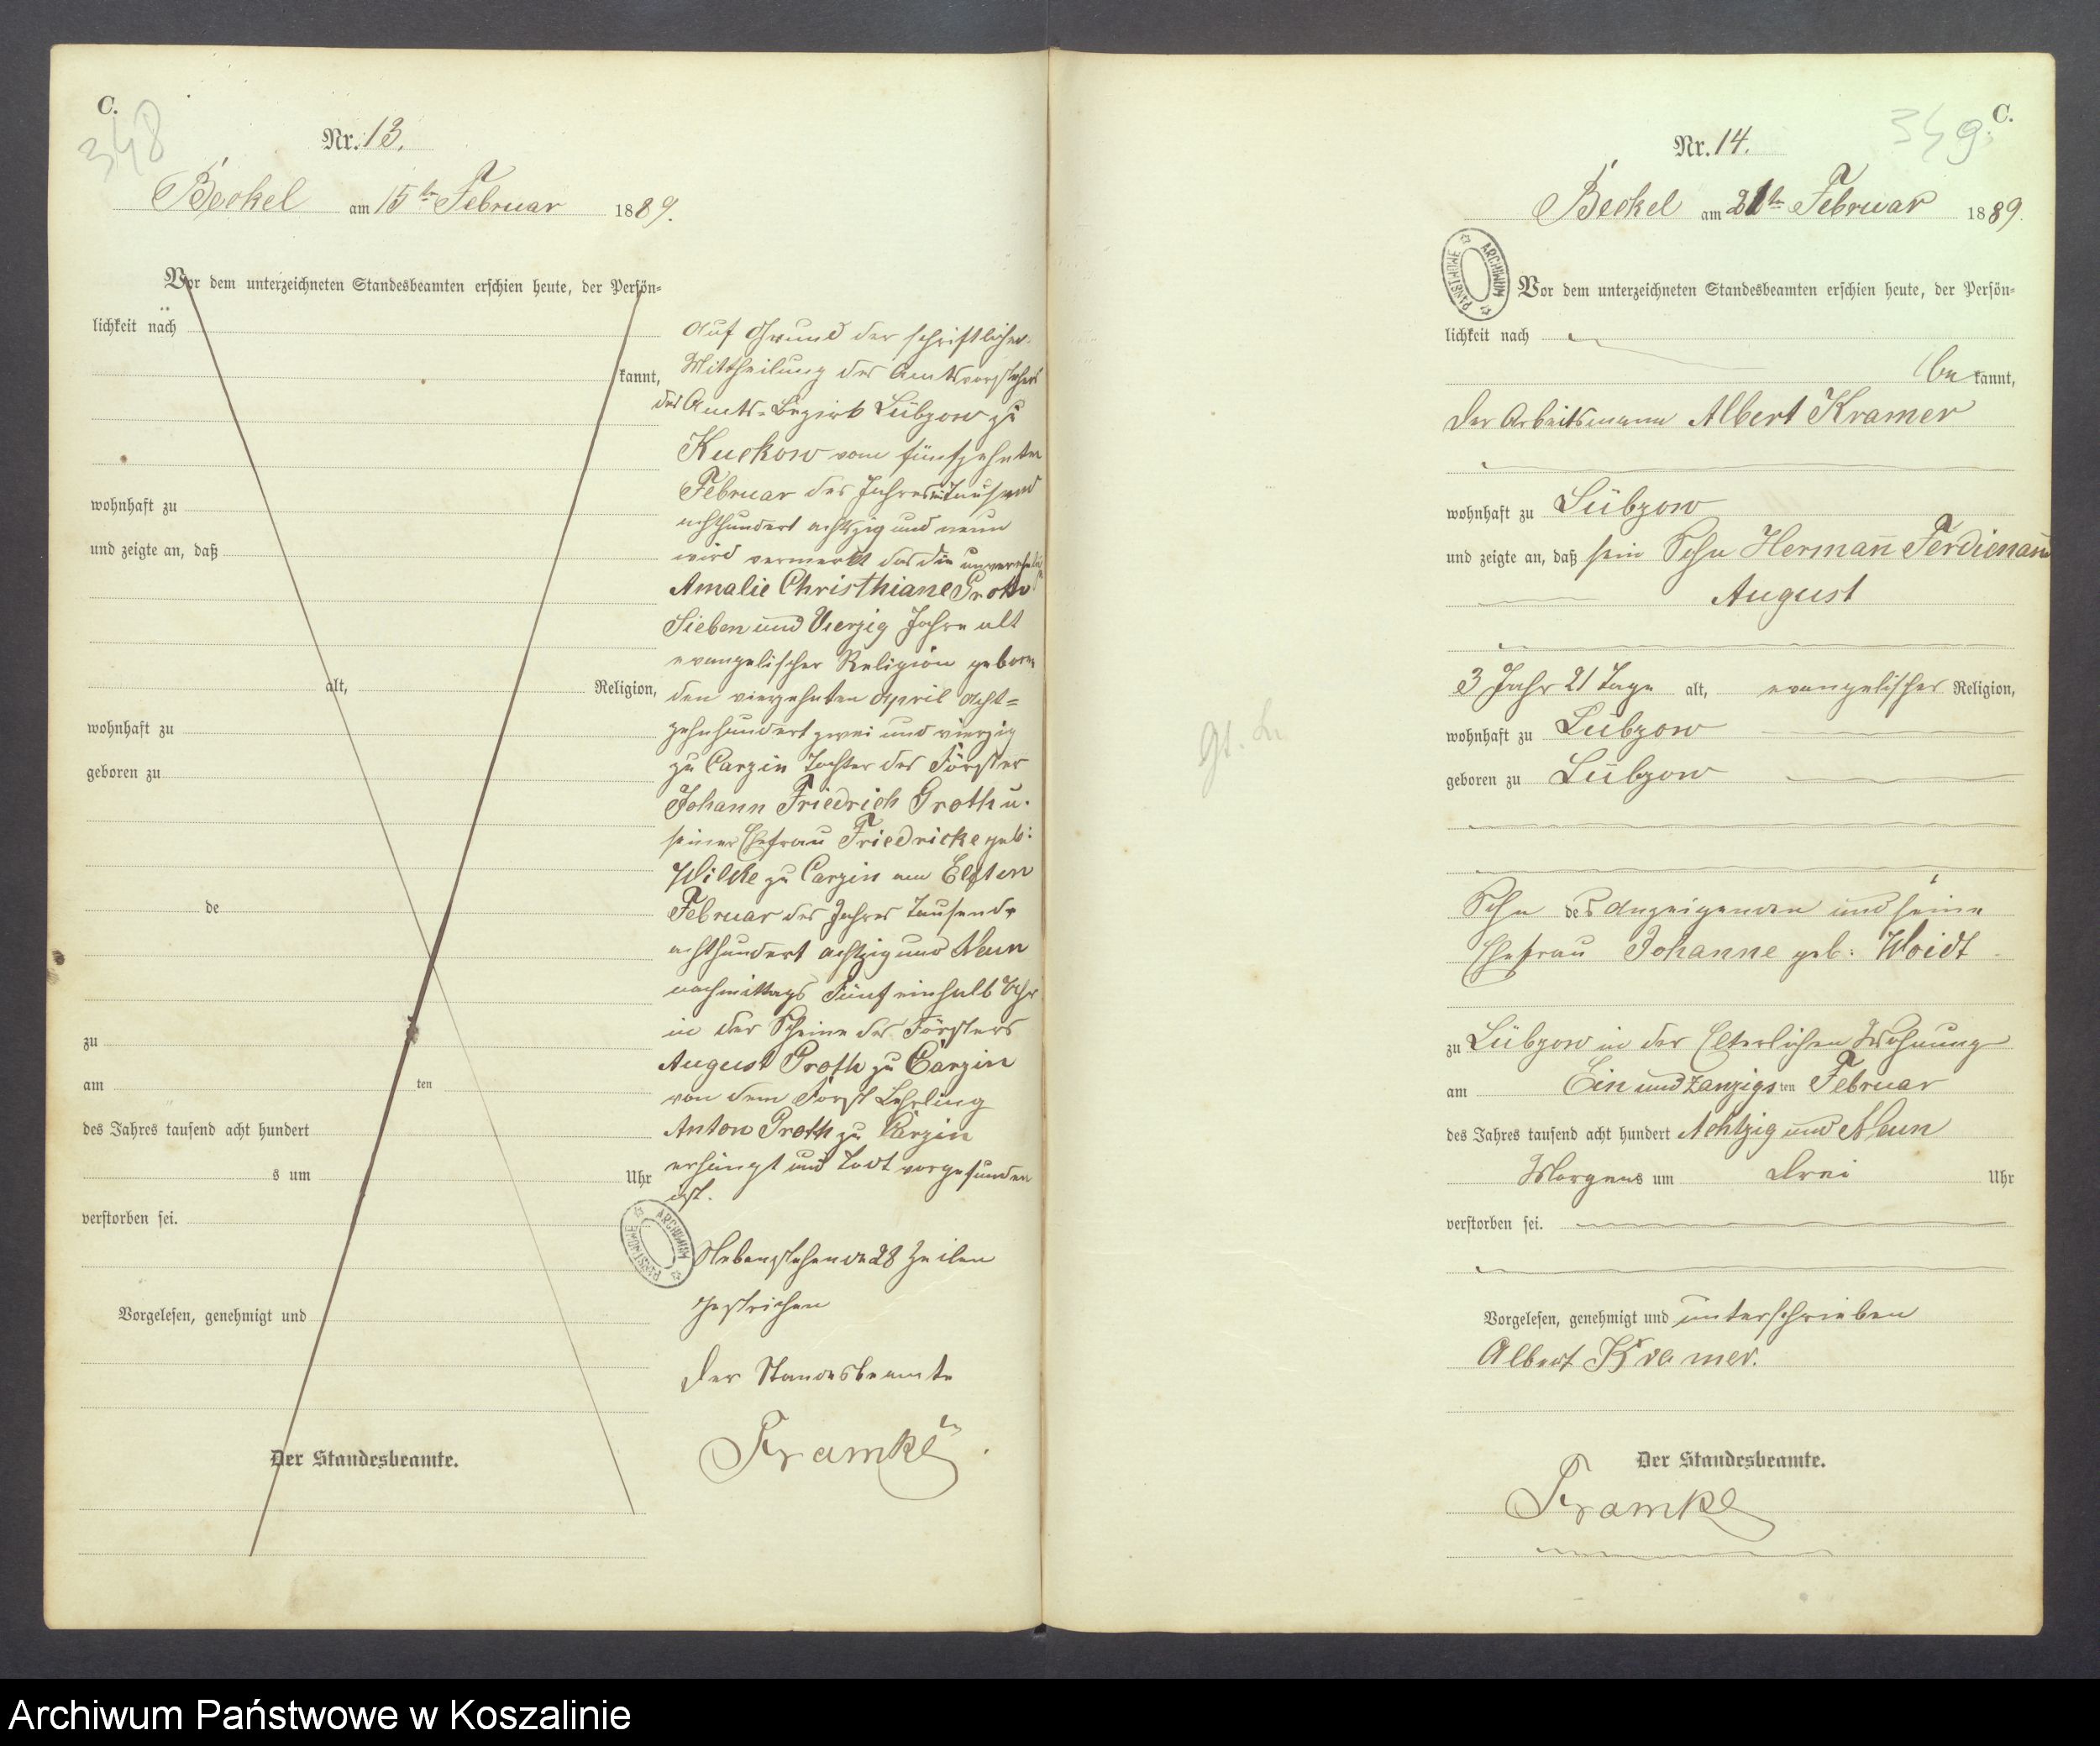 C.
348
Nr. 13.
Beckel am 15ten Februar 1889.
Vor dem unterzeichneten Standesbeamten erschien heute, der Persön-
lichkeit nach
kannt,
wohnhaft zu
und zeigte an, daß
alt, Religion,
wohnhaft zu
geboren zu
de
zu
am ten
des Jahres tausend acht hundert
s um Uhr
verstorben sei.
Vorgelesen, genehmigt und
Der Standesbeamte.
Auf Grund der schriftlichen
Mittheilung des Amtsvorstehers
des Amts-Bezirk Lübzow zu
Kuckow vom fünfzehnten
Februar des Jahres Tausend
achthundert achtzig und neun
wird vermerkt das die unverehelichte
Amalie Christhiane Groth
Sieben und Vierzig Jahre alt
evangelischer Religion geboren
den vierzehnten April Acht=
zehnhundert zwei und vierzig
zu Carzin Tochter des Förster
Johann Friedrich Groth u.
seiner Ehefrau Friedricke geb:
Wilcke zu Carzin am Elften
Februar des Jahres Tausend
achthundert achtzig und Neun
nachmittags Fünf einhalb Uhr
in der Scheine des Försters
August Groth zu Carzin
von dem Forst Lehrling
Anton Groth zu Carzin
erhängt und Todt vorgefunden
ist.
ARCHIWUM PAŃSTWOWE
Nebenstehende 28 Zeilen
gestrichen
Der Standesbeamte
Framke
C.
349.
Nr. 14.
Beckel am 21ten Februar 1889.
ARCHIWUM PAŃSTWOWE
Vor dem unterzeichneten Standesbeamten erschien heute, der Persön-
lichkeit nach
be kannt,
der Arbeitsmann Albert Kramer
wohnhaft zu Lübzow
und zeigte an, daß sein Sohn Hermann Ferdienand
August
3 Jahr 21 Tage alt, evangelischer Religion,
wohnhaft zu Lübzow
geboren zu Lübzow
Sohn des Anzeigenden und seine
Ehefrau Johanne geb: Woidt
zu Lübzow in der Elterlichen Wohnung
am Ein und zanzigsten Februar
des Jahres tausend acht hundert Achtzig und Neun
Morgens um Drei Uhr
verstorben sei.
Vorgelesen, genehmigt und unterschrieben
Albert Kramer.
Der Standesbeamte.
Framke
Archiwum Państwowe w Koszalinie